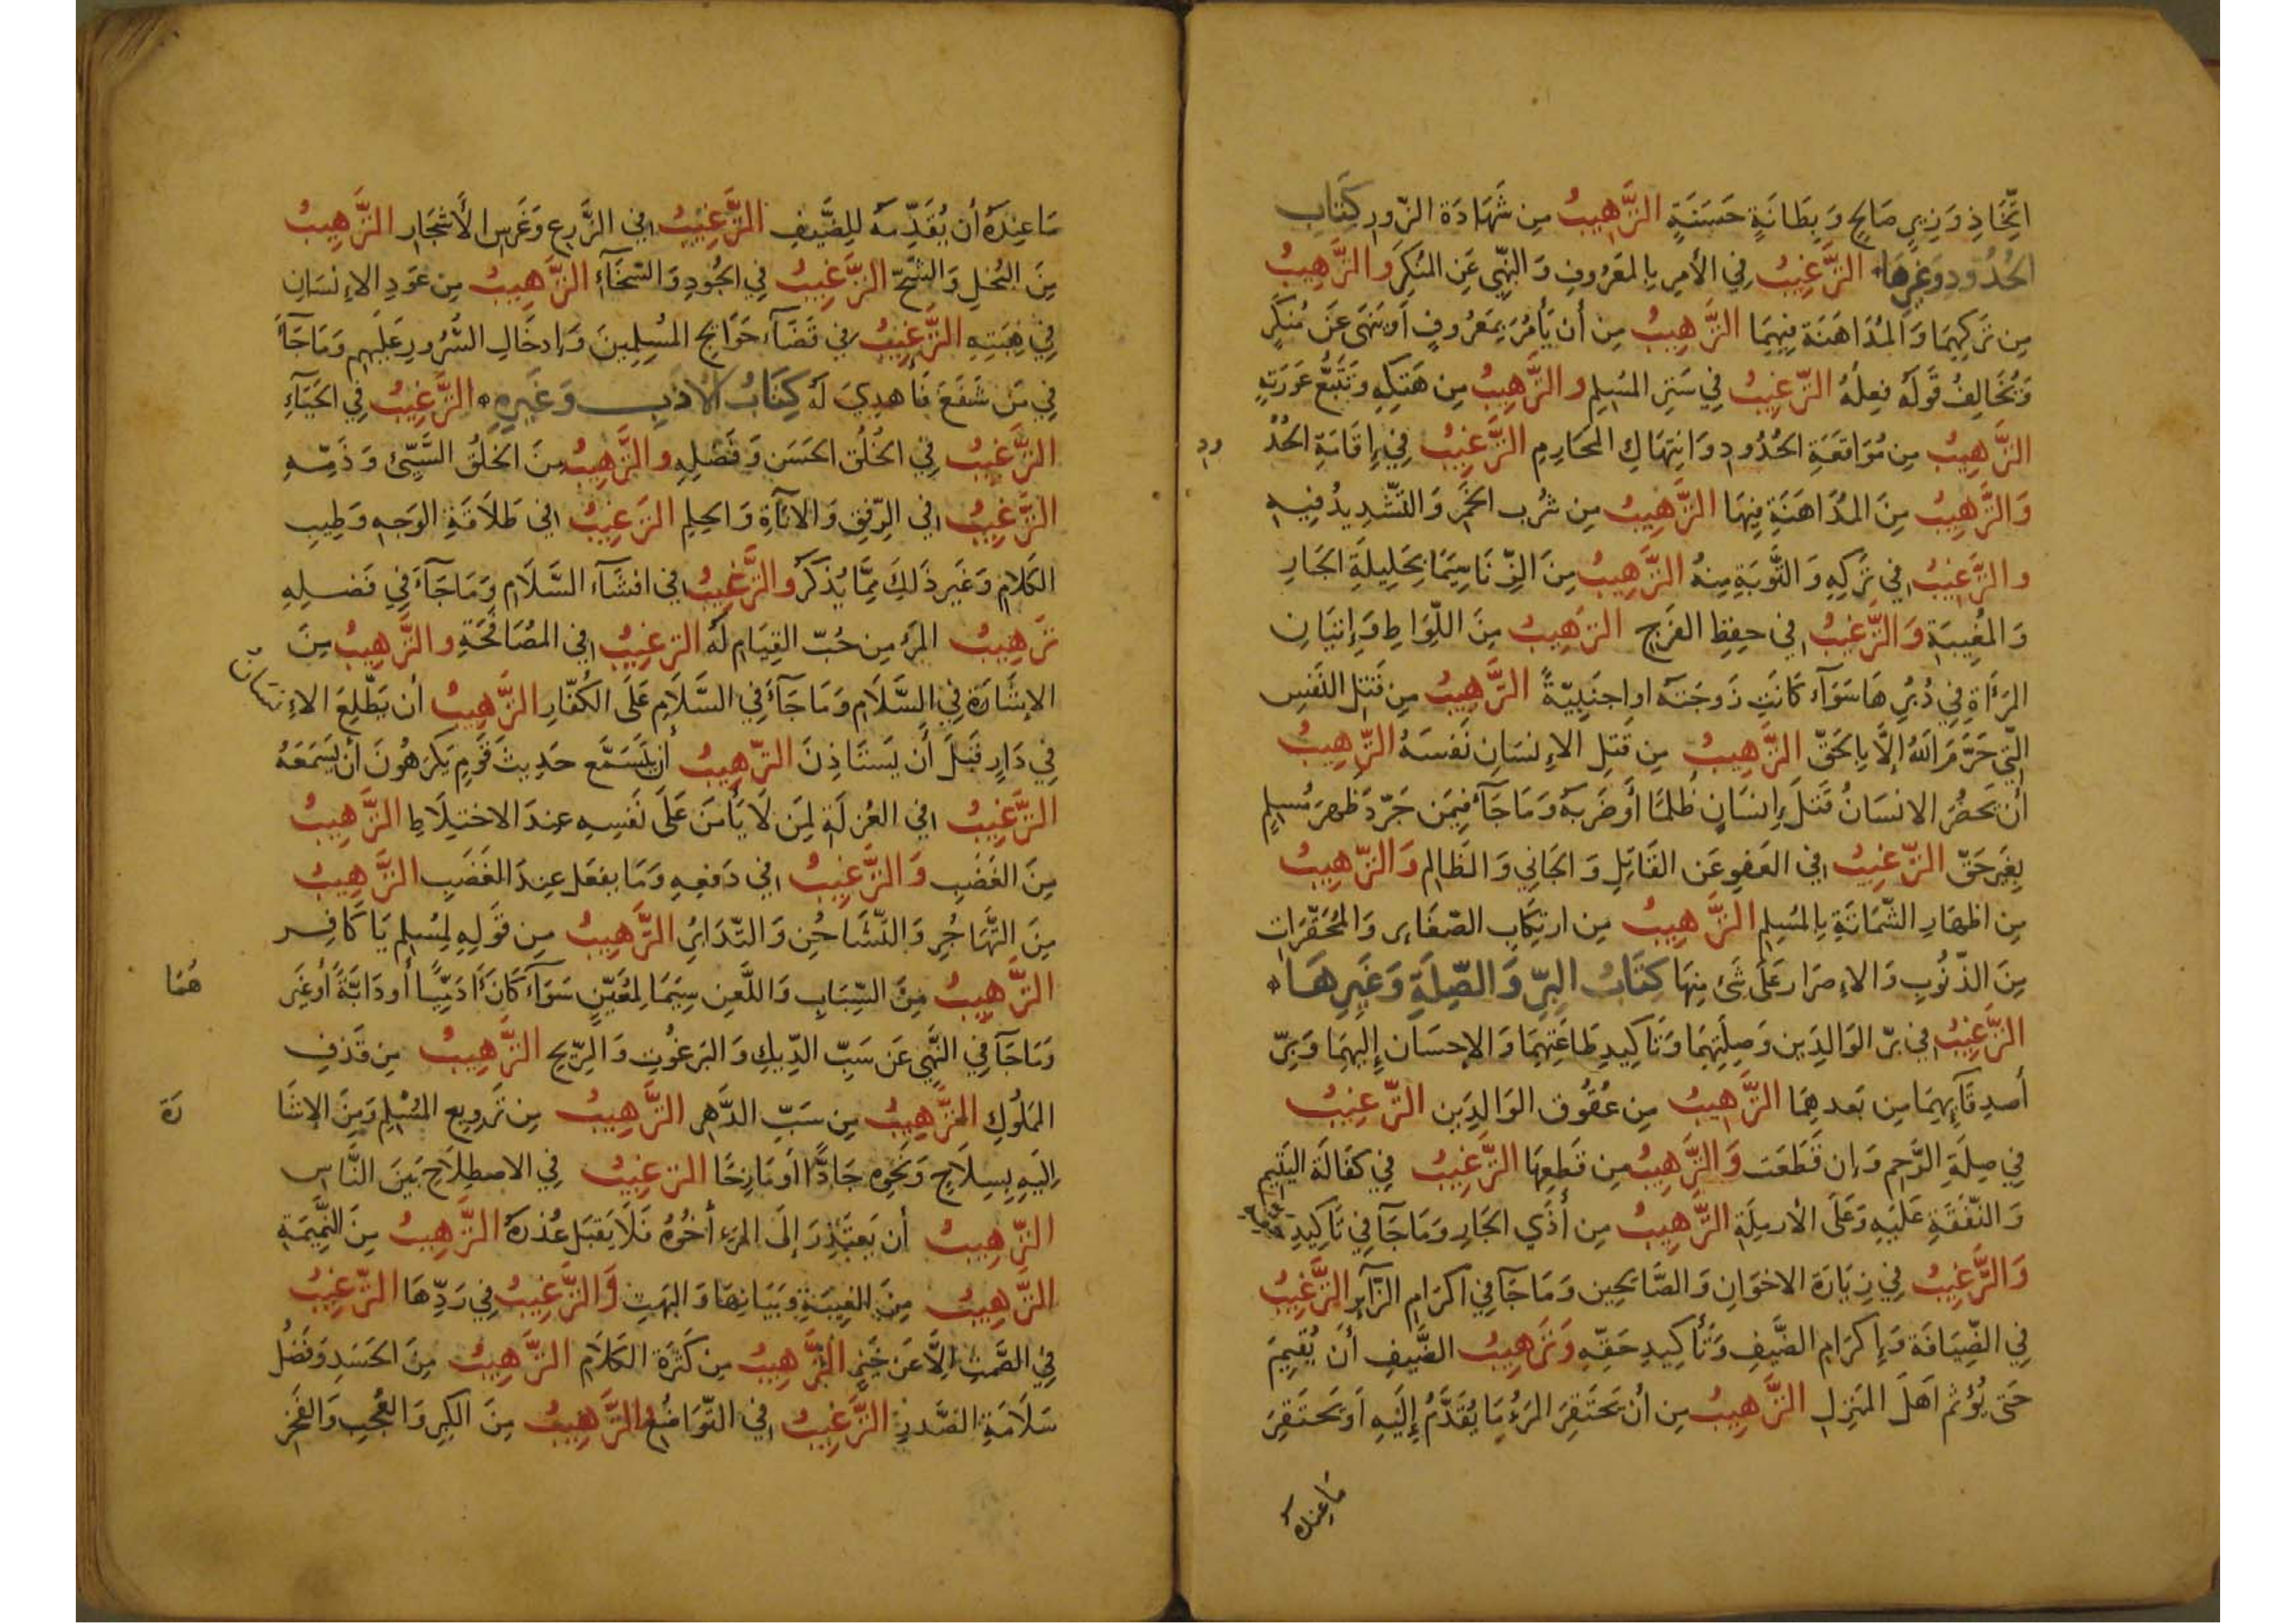 اتِّخَاذِ وَزِيرٍ صَالِحٍ وَبِطَانَةٍ حَسَنَةٍ التَّرْهِيبُ مِن شَهَادَة الزّورِ كِتَاب
الحُدُودِ وَغَيرِهَا التَّرْغِيبُ فِي الأَمرِ بِالمَعرُوفِ وَالنَّهيِ عَنِ المُنكَرِ وَالتَّرْهِيبُ
مِن تَركِهِمَا وَالمُدَاهَنَة فِيهِمَا التَّرْهِيبُ مِن أَن يَأمُرَ بِمَعرُوفٍ أَو يَنهَى عَن مُنكَرٍ
وَيُخَالِفُ قَولُهُ فِعلُهُ التَّرغِيبُ فِي سَترِ المُسلِمِ والتَّرْهِيبُ مِن هَتكِهِ وَتَتَبُّعِ عَورَتِهِ
التَّرْهِيبُ مِن مُوَاقَعَةِ الحُدُودِ وَانتِهَاكِ المحَارِمِ التَّرغِيبُ فِي إِقَامَةِ الحُدُ ود
وَالتَّرْهِيبُ مِنَ المُدَاهَنَةِ فِيهَا التَّرْهِيبُ مِن شُربِ الخَمرِ وَالتَّشدِيدُ فِيهِ
والتَّرغِيبُ فِي تَركِهِ وَالتَّوبَةِ مِنهُ التَّرْهِيبُ مِنَ الزِّنَا سِيَّمَا بِحَلِيلَةِ الجَارِ
وَالمُغِيبَةِ وَالتَّرغِيبُ فِي حِفظِ الفَرجِ التَّرْهِيبُ مِنَ اللِّوَاطِ وَإِتيَانِ
المَرأَةِ فِي دُبُرِهَا سَوَآء كَانَت زَوجَتَه او اجنَبِيّةً التَّرْهِيبُ مِن قَتلِ النَّفسِ
الَّتِي حَرَّمَ اللهُ إِلَّا بِالحَقّ التَّرْهِيبُ مِن قَتلِ الإِنسَانِ نَفسَهُ التَّرْهِيبُ
أَن يَحضُرَ الانسَانُ قَتلَ إِنسَانٍ ظُلمًا أَو ضَربَهُ وَمَا جَآءَ فِيمَن جَرّدَ ظَهرَ مُسلِمٍ
بِغَيرِ حَقّ التَّرغِيبُ فِي العَفوِ عَن القَاتِلِ وَالجَانِي وَالظَالِم وَالتَّرْهِيبُ
مِن اظهَارِ الشّمَاتَةِ بِالمُسلِمِ التَّرْهِيبُ مِن ارتِكَابِ الصّغَايرِ وَالمُحَقَّرَاتِ
مِنَ الذّنُوبِ وَالإِصرَار عَلَى شَئ مِنهَا كِتَابُ البِرِّ وَالصِّلَةِ وَغَيرِهَا
التَّرغِيبُ فِي بِرّ الوَالدَين وَصِلَتِهِمَا وَتَأكِيدِ طَاعَتِهِمَا وَالإِحسَان إِلَيهِمَا وَبِرّ
أَصدِقَآئِهِمَا مِن بَعدِهِمَا التَّرْهِيبُ مِن عُقُوق الوَالِدَين التَّرغِيبُ
فِي صِلَةِ الرَّحِم وَإن قَطَعَت وَالتَّرْهِيبُ مِن قَطعِهَا التَّرغِيبُ فِي كفَالَة اليَتِيم
وَالنّفَقَةِ عَلَيهِ وَعَلَى الأَرمِلَةِ التَّرْهِيبُ مِن أَذَي الجَارِ وَمَا جَآ فِي تَاكِيدِ حقه
وَالتَّرغِيبُ فِي زِيَارَة الاخوَانِ وَالصَّالِحِين وَمَا جَآ فِي اكرَامِ الزَّآيِر التَّرغِيبُ
فِي الضِّيَافَة وَإِكرَامِ الضَّيفِ وَتَأكِيدِ حَقّهِ وَتَرهِيبُ الضَّيفِ أَن يُقِيمَ
حَتى يُؤثم اهَلَ المَنزِلِ التَّرْهِيبُ مِن أَن يَحتَقِرَ المَرءُ مَا يُقَدَّمُ إِلَيهِ أَو يَحتَقِرَ
مَا عِندَهُ
مَا عِندَهُ أَن يُقَدِّمَه لِلضَّيفِ التَّرغِيبُ فِي الزَّرعِ وَغَرسِ الأَشجَارِ التَّرْهِيبُ
مِنَ البُخلِ وَالشُّحّ التَّرغِيبُ فِي الجُودِ وَالسّخَآءِ التَّرْهِيبُ مِن عَودِ الإِنسَانِ
فِي هِبَتِهِ التَّرغِيبُ فِي قَضَآء حَوَآيج المُسلِمِينَ وَإِدخَالِ السُّرُورِ عَلَيهِم وَمَا جَآءَ
فِي مَن شَفَعَ فَأهدِيَ لَهُ كِتَابُ الأدَبِ وَغَيرِهِ التَّرغِيبُ فِي الحَيَآءِ
التَّرغِيبُ فِي الخُلُق الحَسَن وَفَضلِهِ والتَّرْهِيبُ مِنَ الخلُق السَّيِّئ وَذَمِّهِ
التَّرغِيبُ فِي الرِّفق وَالأنَآة وَالحِلمِ التَّرغِيبُ فِي طَلَاقَةِ الوَجهِ وَطِيبِ
الكَلَامِ وَغَيرِ ذَلِكَ مِمَّا يُذكَر والتَّرغِيبُ فِي افشَآء السَّلَام وَمَا جَآءَ فِي فَضلِهِ
تَرهِيبُ المَرء مِن حُبّ القِيَام لَهُ الترغِيبُ فِي المُصَافَحَةِ والتَّرْهِيبُ مِنَ
الإِشَارَة فِي السَّلَام وَمَا جَآءَ فِي السَّلَامِ عَلَى الكُفّارِ التَّرْهِيبُ أَن يَطّلِعَ الإِنسَانُ
فِي دَارٍ قَبلَ أَن يَستَاذِنَ التَّرْهِيبُ أَن يَتَسَمَّع حَدِيثَ قَومٍ يَكرَهُونَ أَن يَسمَعَهُ
التَّرغِيبُ فِي العُزلَةِ لِمَن لَا يَأمَن عَلَى نَفسِهِ عِندَ الاختِلَاطِ التَّرْهِيبُ
مِنَ الغَضَبِ وَالتَّرغِيبُ فِي دَفعِهِ وَمَا يفعَل عِندَ الغَضَبِ التَّرْهِيبُ
مِنَ التَّهَاجُرِ وَالتَّشَاحُنِ وَالتَّدَابُرِ التَّرْهِيبُ مِن قَولِهِ لِمُسلِمٍ يَا كَافِر
التَّرْهِيبُ مِنَ السِّبَابِ وَاللَّعنِ سِيَمَا لِمُعَيَّنٍ سَوَآء كَانَ آدَمِيًّا أَو دَابَّةً أَو غَيرَ هُمَا
وَمَا جَآ فِي النَّهيِ عَن سَبّ الدِّيكِ وَالبَرغُوثِ وَالرِّيح التَّرْهِيبُ مِن قَذفِ
المَملُوكِ التَّرْهِيبُ مِن سَبّ الدَّهرِ التَّرْهِيبُ مِن تَروِيعِ المُسْلِمِ وَمِنَ الإِشَا رَة
إِلَيهِ بِسِلَاحٍ وَنَحوِهِ جَادًّا أَو مَازِحًا الترغِيبُ فِي الاصطِلَاحِ بَينَ النَّاسِ
التَّرْهِيبُ أَن يَعتَذِرَ إِلَى المَرءِ أَخُوهُ فَلَا يَقبَل عُذرَهُ التَّرْهِيبُ مِنَ النَّمِيمَةِ
التَّرْهِيبُ مِنَ الغِيبَةِ وَبَيَانِهَا وَالبَهتِ وَالتَّرغِيبُ فِي رَدِّهَا التَّرغِيبُ
فِي الصَّمتِ إِلَّا عَن خَيرٍ التَّرْهِيبُ مِن كَثرَة الكَلَام التَّرْهِيبُ مِنَ الحَسَدِ وَفَضلُ
سَلَامَةِ الصَّدرِ التَّرغِيبُ فِي التّوَاضُعِ والتَّرْهِيبُ مِنَ الكِبرِ وَالعُجبِ وَالفَخرِ